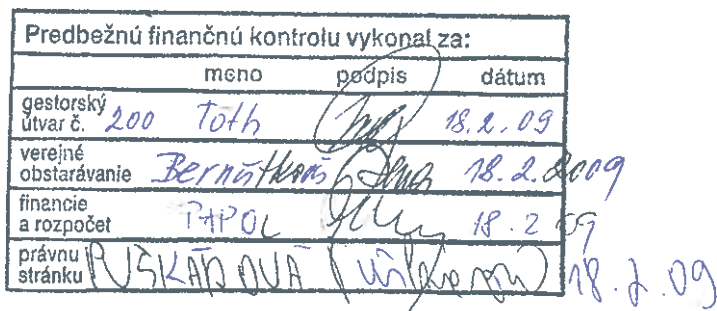 Predbežnú finančnú kontrolu vykonal za:
meno podpis dátum
gestorský útvar č. 200 Toth 18.2.09
verejné obstarávanie 18.2.2009
financie a rozpočet 18.2 09
právnu stránku PUŠKÁROVÁ 18.2.09